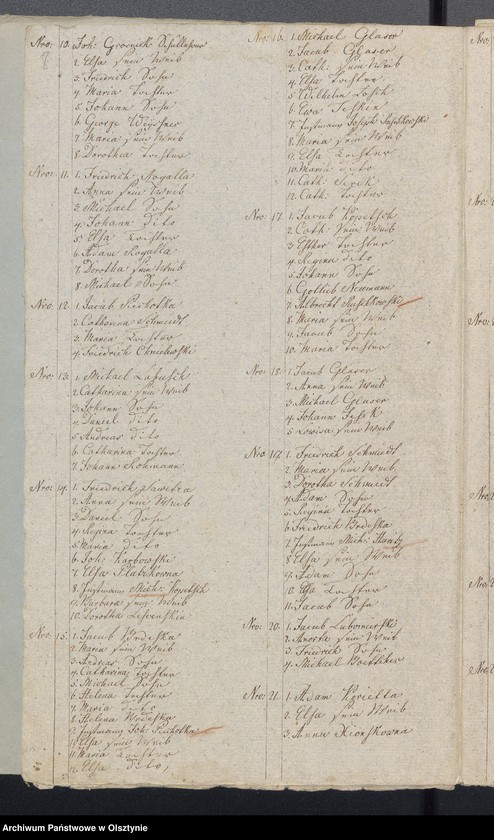 Nro: 10. Joh: Groczick Schullehrer
2. Elsa sein Weib
3. Friedrich Sohn
4. Maria Tochter
5. Johann Sohn
6. George
7. Maria sein Weib
8. Dorothea Tochter
Nro: 11. 1. Friedrich Rogalla
2. Anna sein Weib
3. Michael Sohn
4. Johann dito
5. Elsa Tochter
6. Adam Rogalla
7. Dorotha sein Weib
8. Michael Sohn
Nro. 12 1. Jacob Piechotka
2. Catharina Schmiedt
3. Maria Tochter
4. Friedrich Chmielewski
Nro: 13. 1. Mikael Lapusik
2. Catharina sein Weib
3. Johann Sohn
4. Daniel dito
5. Andreas dito
6. Catharina Tochter
7. Johann Rohmann
Nro: 14. 1. Friedrich Sawetza
2. Anna sein Weib
3. Daniel Sohn
4. Regina Tochter
5. Maria dito
6. Joh: Karbowski
7. Elsa
8. Instmann Mich: Kopetsch
9. Barbara sein Weib
10. Dorotha
Nro: 15. 1. Jacob Brdeska
2. Maria sein Weib
3. Andreas Sohn
4. Catharina Tochter
5. Michael Sohn
6. Helena Tochter
7. Maria dito
8. Helena
9. Instmann Joh: Piechotka
10. Elsa sein Weib
11. Maria Tochter
12. Elsa dito,
Nro 16. 1. Michael Glaser
2. Jacob Glaser
3. Cath: sein Weib
4. Elsa Tochter
5. Wilhelm
6. Ewa
7. Instmann Joseph
8. Maria sein Weib
9. Elsa Tochter
10. Maria dito
11. Cath:
12. Cath: Tochter
Nro: 17. 1. Jacob Kopetsch
2. Cath: sein Weib
3. Esther Tochter
4. Regina dito
5. Johann Sohn
6. Gottlieb Neumann
7. Albrecht
8. Maria sein Weib
9. Jacob Sohn
10. Maria Tochter
Nro: 18. 1. Jacob Glaser
2. Anna sein Weib
3. Mikael Glaser
4. Johann
5. Lowisa sein Weib
Nro: 19. 1. Friedrich Schmiedt
2. Maria sein Weib
3. Dorotha Schmiedt
4. Adam Sohn
5. Regina Tochter
6. Friedrich Brdeska
7. Instmann Mich:
8. Elsa sein Weib
9. Adam Sohn
10. Elsa Tochter
11. Jacob Sohn
Nro: 20. 1. Jacob Lubomierski
2. Anorta sein Weib
3. Friedrich Sohn
4. Michael Boettcher
Nro: 21. 1. Adam
2. Elsa sein Weib
3. Anna Xionskowna
Archiwum Państwowe w Olsztynie